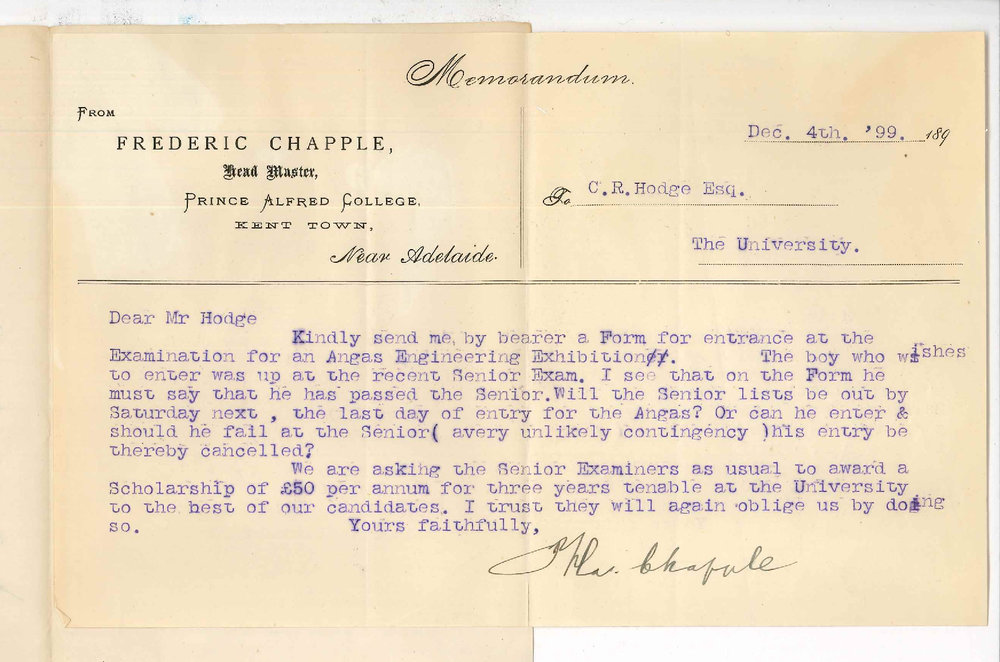 Memorandum.
FROM
FREDERIC CHAPPLE,
Head Master,
PRINCE ALFRED COLLEGE,
KENT TOWN,
Near Adelaide.
Dec. 4th. '99. 189
To C.R.Hodge Esq.
The University.
Dear Mr Hodge
Kindly send me, by bearer a Form for entrance at the
Examination for an Angas Engineering Exhibition//. The boy who wishes
to enter was up at the recent Senior Exam. I see that on the Form he
must say that he has passed the Senior.Will the Senior lists be out by
Saturday next , the last day of entry for the Angas? Or can he enter &
should he fail at the Senior( avery unlikely contingency )his entry be
thereby cancelled?
We are asking the Senior Examiners as usual to award a
Scholarship of £50 per annum for three years tenable at the University
to the best of our candidates. I trust they will again oblige us by doing
so. Yours faithfully,
Chapple